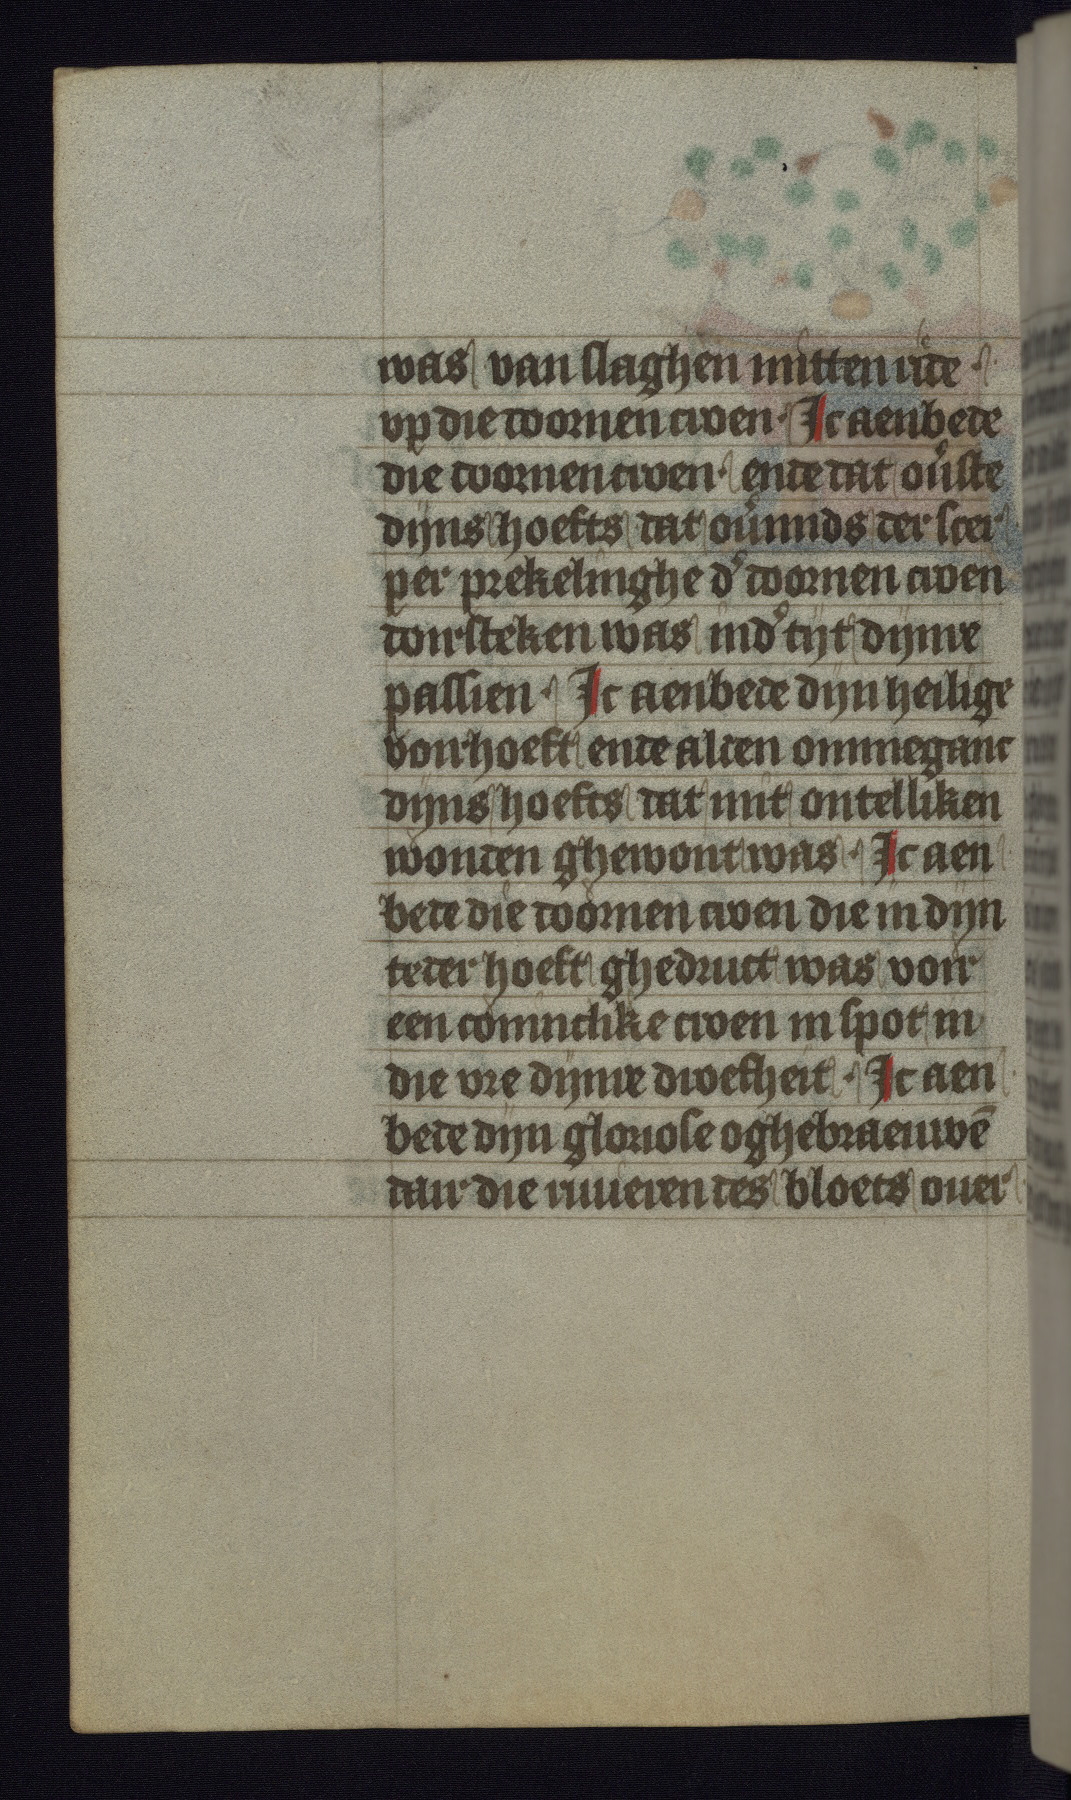 was van slaghen mitten riede
vp die doornen croen. Ic aenbede
die doornen croen. ende dat ouste
dijns hoefts dat ouimids der scer
per prekelinghe d' doornen croen
doirsteken was ind' tijt dijnre
passien. Ic aenbede dijn heilige
voirhoeft ende alden ommeganc
dijns hoefts dat mit ontelliken
wonden ghewont was. Ic aen
bede die doornen croen die in dijn
teder hoeft ghedruct was voir
een coninclike croen in spot in
die vre dijnre droefheit. Ic aen
bede dijn gloriose oghebraeuwē
dair die riuieren des bloets ouer